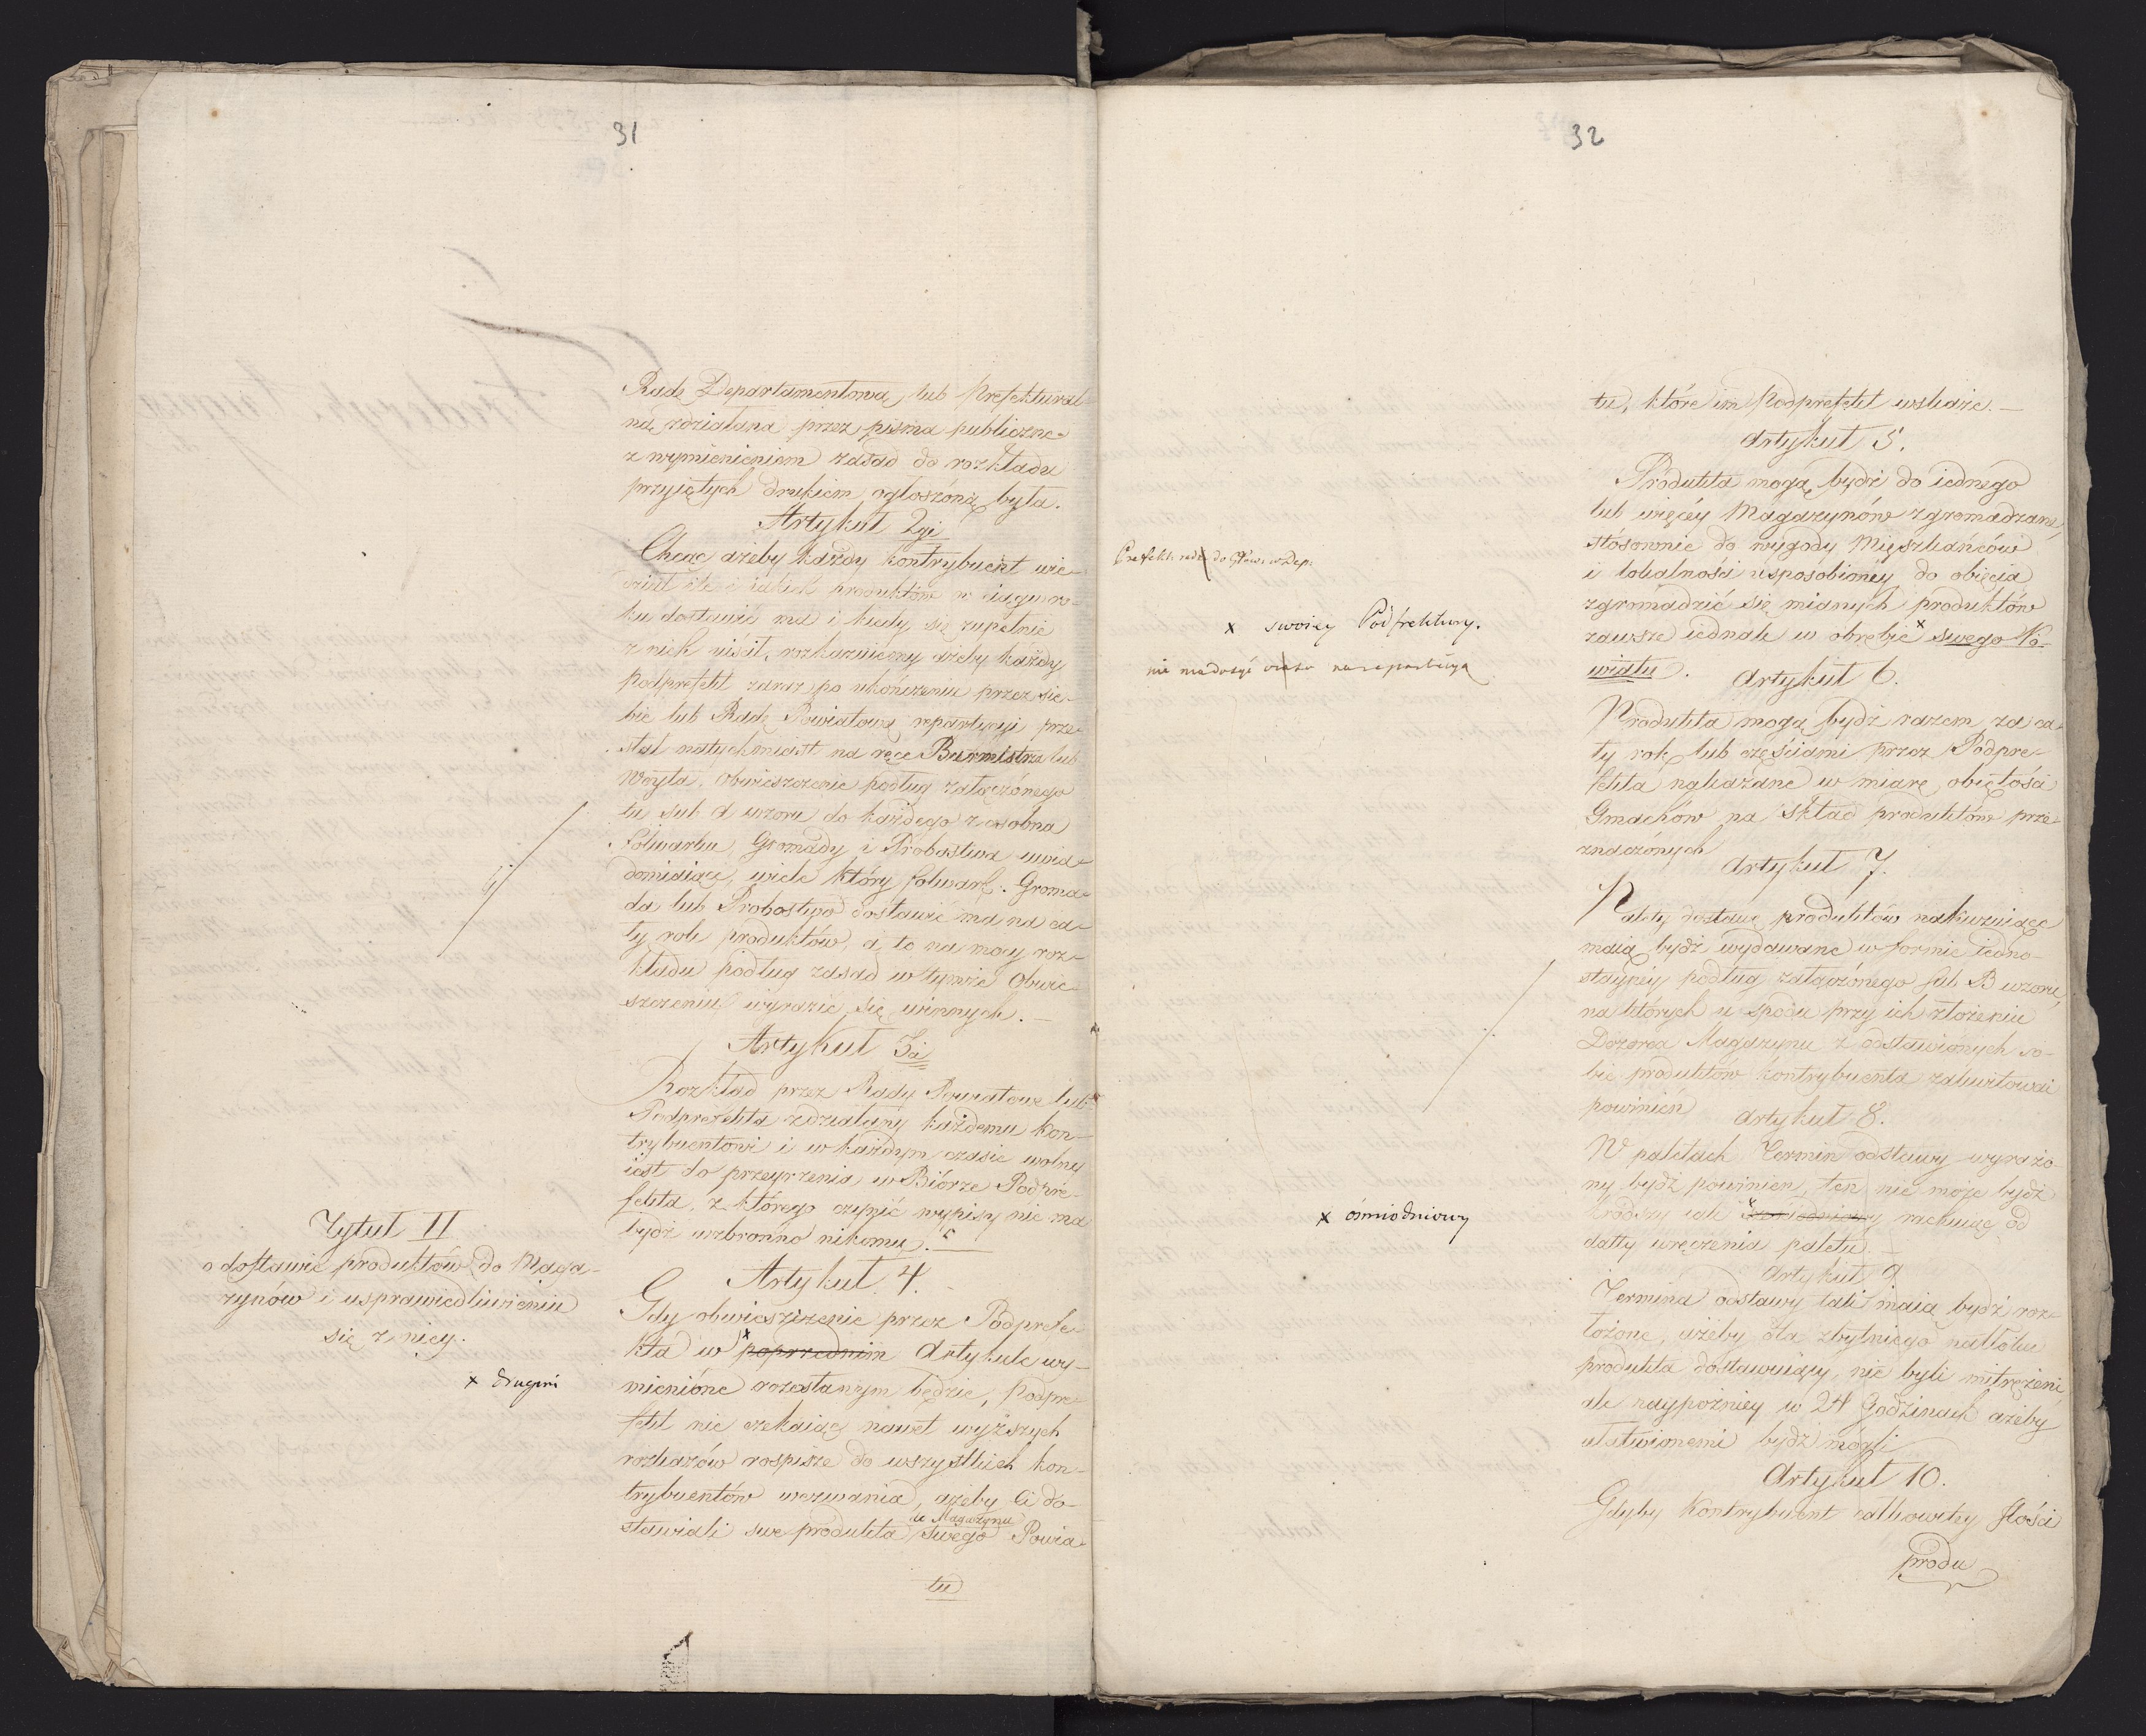 31
Radę Departamentową lub Prefektural
ną zdziałana przez pisma publiczne
z wymienieniem zasad do rozkładu
przyiętych drukiem ogłoszóną była.
Artykuł 2gi
Chcąc ażeby każdy kontrybuent wie-
dział ile i iakich produktów w ciągu ro-
ku dostawić ma i kiedy się zupełnie
z nich uiścił, rozkazuiemy ażeby każdy
Podprefekt zaraz po ukończeniu przez sie-
bie lub Radę Powiatową repartycyi prze-
słał natychmiast na ręce Burmistrza lub
Woyta, Obwieszczenie podług załączónego
tu sub A wzoru do każdego z osobna
Folwarku, Gromady i Probostwa uwia-
domiaiące, wiele który folwark, Groma-
da lub Probostwo dostawić ma na ca-
ły rok produktów, a to na mocy roz-
kładu podług zasad w tymże Obwie-
szczeniu wyrazić się winnych. —
Artykuł 3ci
Rozkład przez Rady Powiatowe lub
Podprefekta zdziałany każdemu kon-
trybuentowi i w każdym czasie wolny
iest do przeyrzenia w Biórze Podpre-
fekta, z którego czynić wypisy nie ma
bydź wzbronno nikomu. —
Tytuł II
o dostawie produktów do Maga-
zynów i usprawiedliwieniu
się z niey.
Artykuł 4.
Gdy obwieszczenie przez Podprefe-
kta w x poprzednim Artykule wy-
x drugim
mienióne rozesłanym będzie, Podpre-
fekt nie czekaiąc nawet wyższych
rozkazów rospisze do wszystkich kon-
trybuentów wezwania, ażeby Ci do-
do Magazynu
stawiali swe produkta swego Powia-
tu
32
tu, które im Podprefekt wskaże. —
Artykuł 5.
Produkta mogą bydź do iednego
lub więcéy Magazynów zgromadzane,
stosownie do wygody Mięszkańców
i lokalności usposobioney do obięcia
zgromadzić się mianych produktów
zawsze iednak w obrębie x swego Po-
wiatu.
x swoiey Podprefektury.
nie ma dosyć czasu na repartycyą
Artykuł 6.
Produkta mogą bydź razem za ca-
ły rok, lub częściami przez Podpre-
fekta nakazane w miarę obiętości
Gmachów na skład produktów prze-
znaczónych
Artykuł 7.
Palety dostawę produktów nakazuiące
maią bydź wydawane w formie iedno-
stayney podług załączónego sub B wzoru,
na których u spodu przy ich złożeniu
Dozorca Magazynu z odstawionych so-
bie produktów kontrybuenta zakwitować
powinien
Artykuł 8.
W paletach Termin odstawy wyrażo-
ny bydź powinien, ten nie może bydź
krótszy iak x rachuiąc od
x ośmiodniowy
datty wręczenia paletu. —
Artykuł 9
Termina odstawy tak maią bydź roz-
łożone, ażeby dla zbytniego natłoku
produkta dostawuiący, nie byli mitrężeni,
ale naypóźniey w 24 Godzinach ażeby
ułatwionemi bydź mógli
Artykuł 10.
Gdyby Kontrybuent całkowitey Ilości
produ